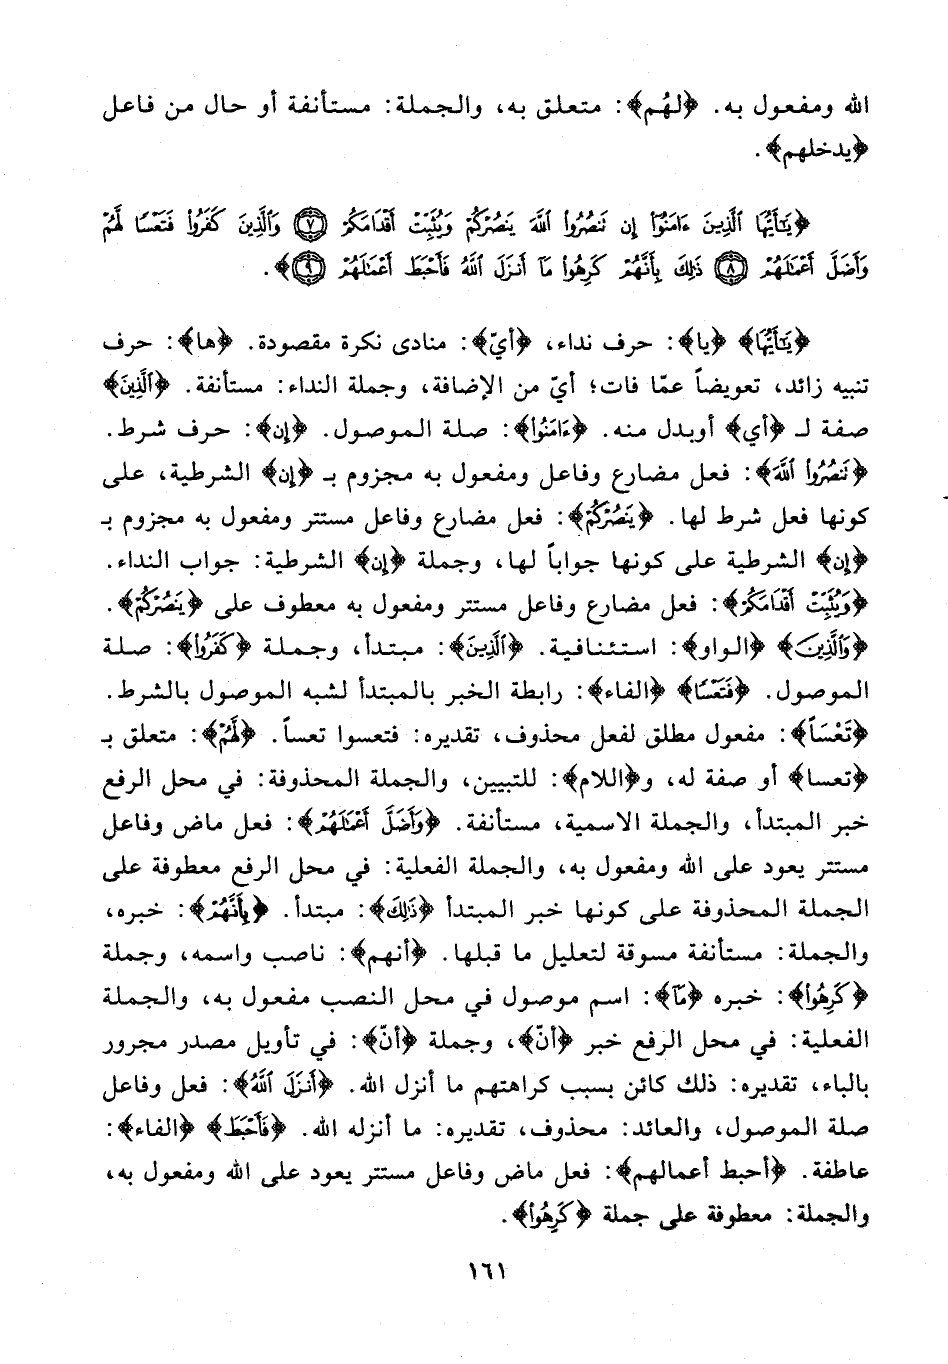 الله ومفعول به. ﴿لهُم﴾: متعلق به، والجملة: مستأنفة أو حال من فاعل
﴿يدخلهم﴾.
﴿يَٰٓأَيُّهَا ٱلَّذِينَ ءَامَنُوٓا۟ إِن تَنصُرُوا۟ ٱللَّهَ يَنصُرْكُمْ وَيُثَبِّتْ أَقْدَامَكُمْ ٧ وَٱلَّذِينَ كَفَرُوا۟ فَتَعْسًا لَّهُمْ
وَأَضَلَّ أَعْمَٰلَهُمْ ٨ ذَٰلِكَ بِأَنَّهُمْ كَرِهُوا۟ مَآ أَنزَلَ ٱللَّهُ فَأَحْبَطَ أَعْمَٰلَهُمْ ٩﴾.
﴿يَٰٓأَيُّهَا﴾ ﴿يا﴾: حرف نداء، ﴿أيّ﴾: منادى نكرة مقصودة. ﴿ها﴾: حرف
تنبيه زائد، تعويضاً عمّا فات؛ أيّ من الإضافة، وجملة النداء: مستأنفة. ﴿ٱلَّذِينَ﴾
صفة لـ ﴿أي﴾ أوبدل منه. ﴿ءَامَنُوٓا۟﴾: صلة الموصول. ﴿إِن﴾: حرف شرط.
﴿تَنصُرُوا۟ ٱللَّهَ﴾: فعل مضارع وفاعل ومفعول به مجزوم بـ ﴿إن﴾ الشرطية، على
كونها فعل شرط لها. ﴿يَنصُرْكُمْ﴾: فعل مضارع وفاعل مستتر ومفعول به مجزوم بـ
﴿إن﴾ الشرطية على كونها جواباً لها، وجملة ﴿إن﴾ الشرطية: جواب النداء.
﴿وَيُثَبِّتْ أَقْدَامَكُمْ﴾: فعل مضارع وفاعل مستتر ومفعول به معطوف على ﴿يَنصُرْكُمْ﴾.
﴿وَٱلَّذِينَ﴾ ﴿الواو﴾: استئنافية. ﴿ٱلَّذِينَ﴾: مبتدأ، وجملة ﴿كَفَرُوا۟﴾: صلة
الموصول. ﴿فَتَعْسًا﴾ ﴿الفاء﴾: رابطة الخبر بالمبتدأ لشبه الموصول بالشرط.
﴿تَعْسَاً﴾: مفعول مطلق لفعل محذوف، تقديره: فتعسوا تعساً. ﴿لَّهُمْ﴾: متعلق بـ
﴿تعسا﴾ أو صفة له، و﴿اللام﴾: للتبيين، والجملة المحذوفة: في محل الرفع
خبر المبتدأ، والجملة الاسمية، مستأنفة. ﴿وَأَضَلَّ أَعْمَٰلَهُمْ﴾: فعل ماض وفاعل
مستتر يعود على الله ومفعول به، والجملة الفعلية: في محل الرفع معطوفة على
الجملة المحذوفة على كونها خبر المبتدأ ﴿ذَٰلِكَ﴾: مبتدأ. ﴿بِأَنَّهُمْ﴾: خبره،
والجملة: مستأنفة مسوقة لتعليل ما قبلها. ﴿أنهم﴾: ناصب واسمه، وجملة
﴿كَرِهُوا۟﴾: خبره ﴿مَآ﴾: اسم موصول في محل النصب مفعول به، والجملة
الفعلية: في محل الرفع خبر ﴿أنّ﴾، وجملة ﴿أنّ﴾: في تأويل مصدر مجرور
بالباء، تقديره: ذلك كائن بسبب كراهتهم ما أنزل الله. ﴿أَنزَلَ ٱللَّهُ﴾: فعل وفاعل
صلة الموصول، والعائد: محذوف، تقديره: ما أنزله الله. ﴿فَأَحْبَطَ﴾ ﴿الفاء﴾:
عاطفة. ﴿أحبط أعمالهم﴾: فعل ماض وفاعل مستتر يعود على الله ومفعول به،
والجملة: معطوفة على جملة ﴿كَرِهُوا۟﴾.
١٦١